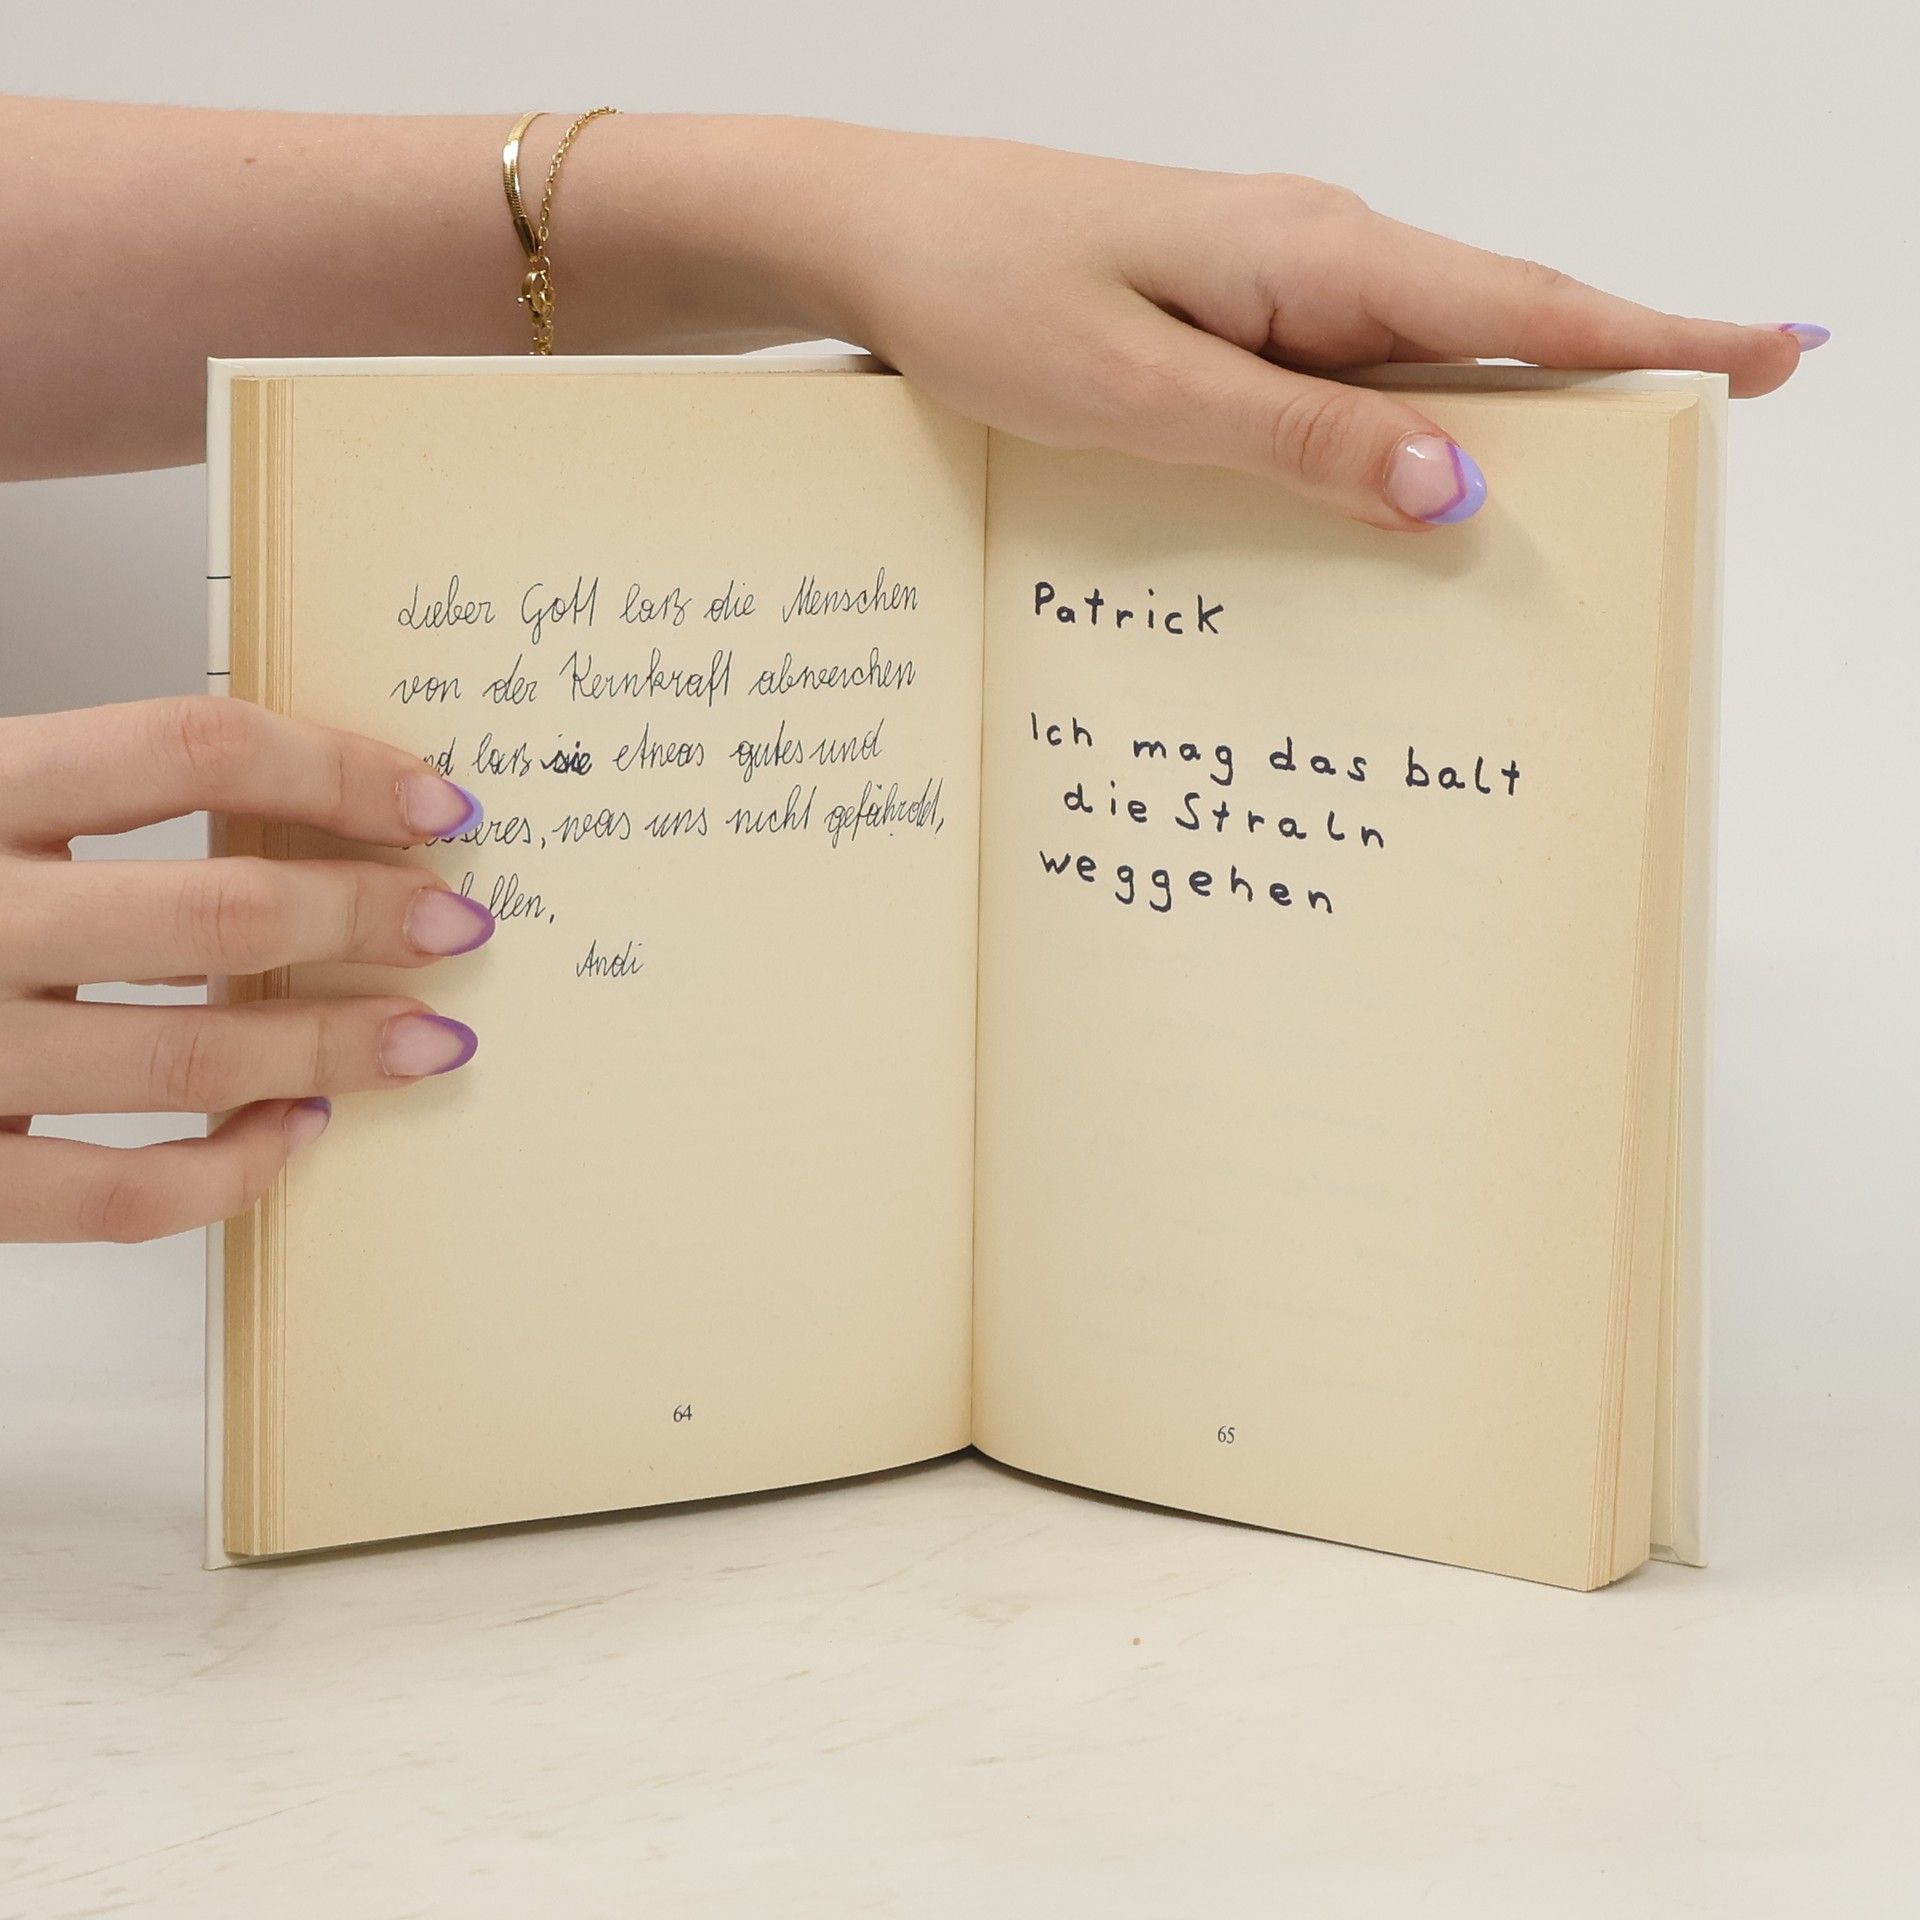 Lieber Gott laß die Menschen
von der Kernkraft abweichen
laß sie etwas gutes und
was uns nicht gefährdet,
Andi
64
Patrick
Ich mag das balt
die Straln
weggehen
65